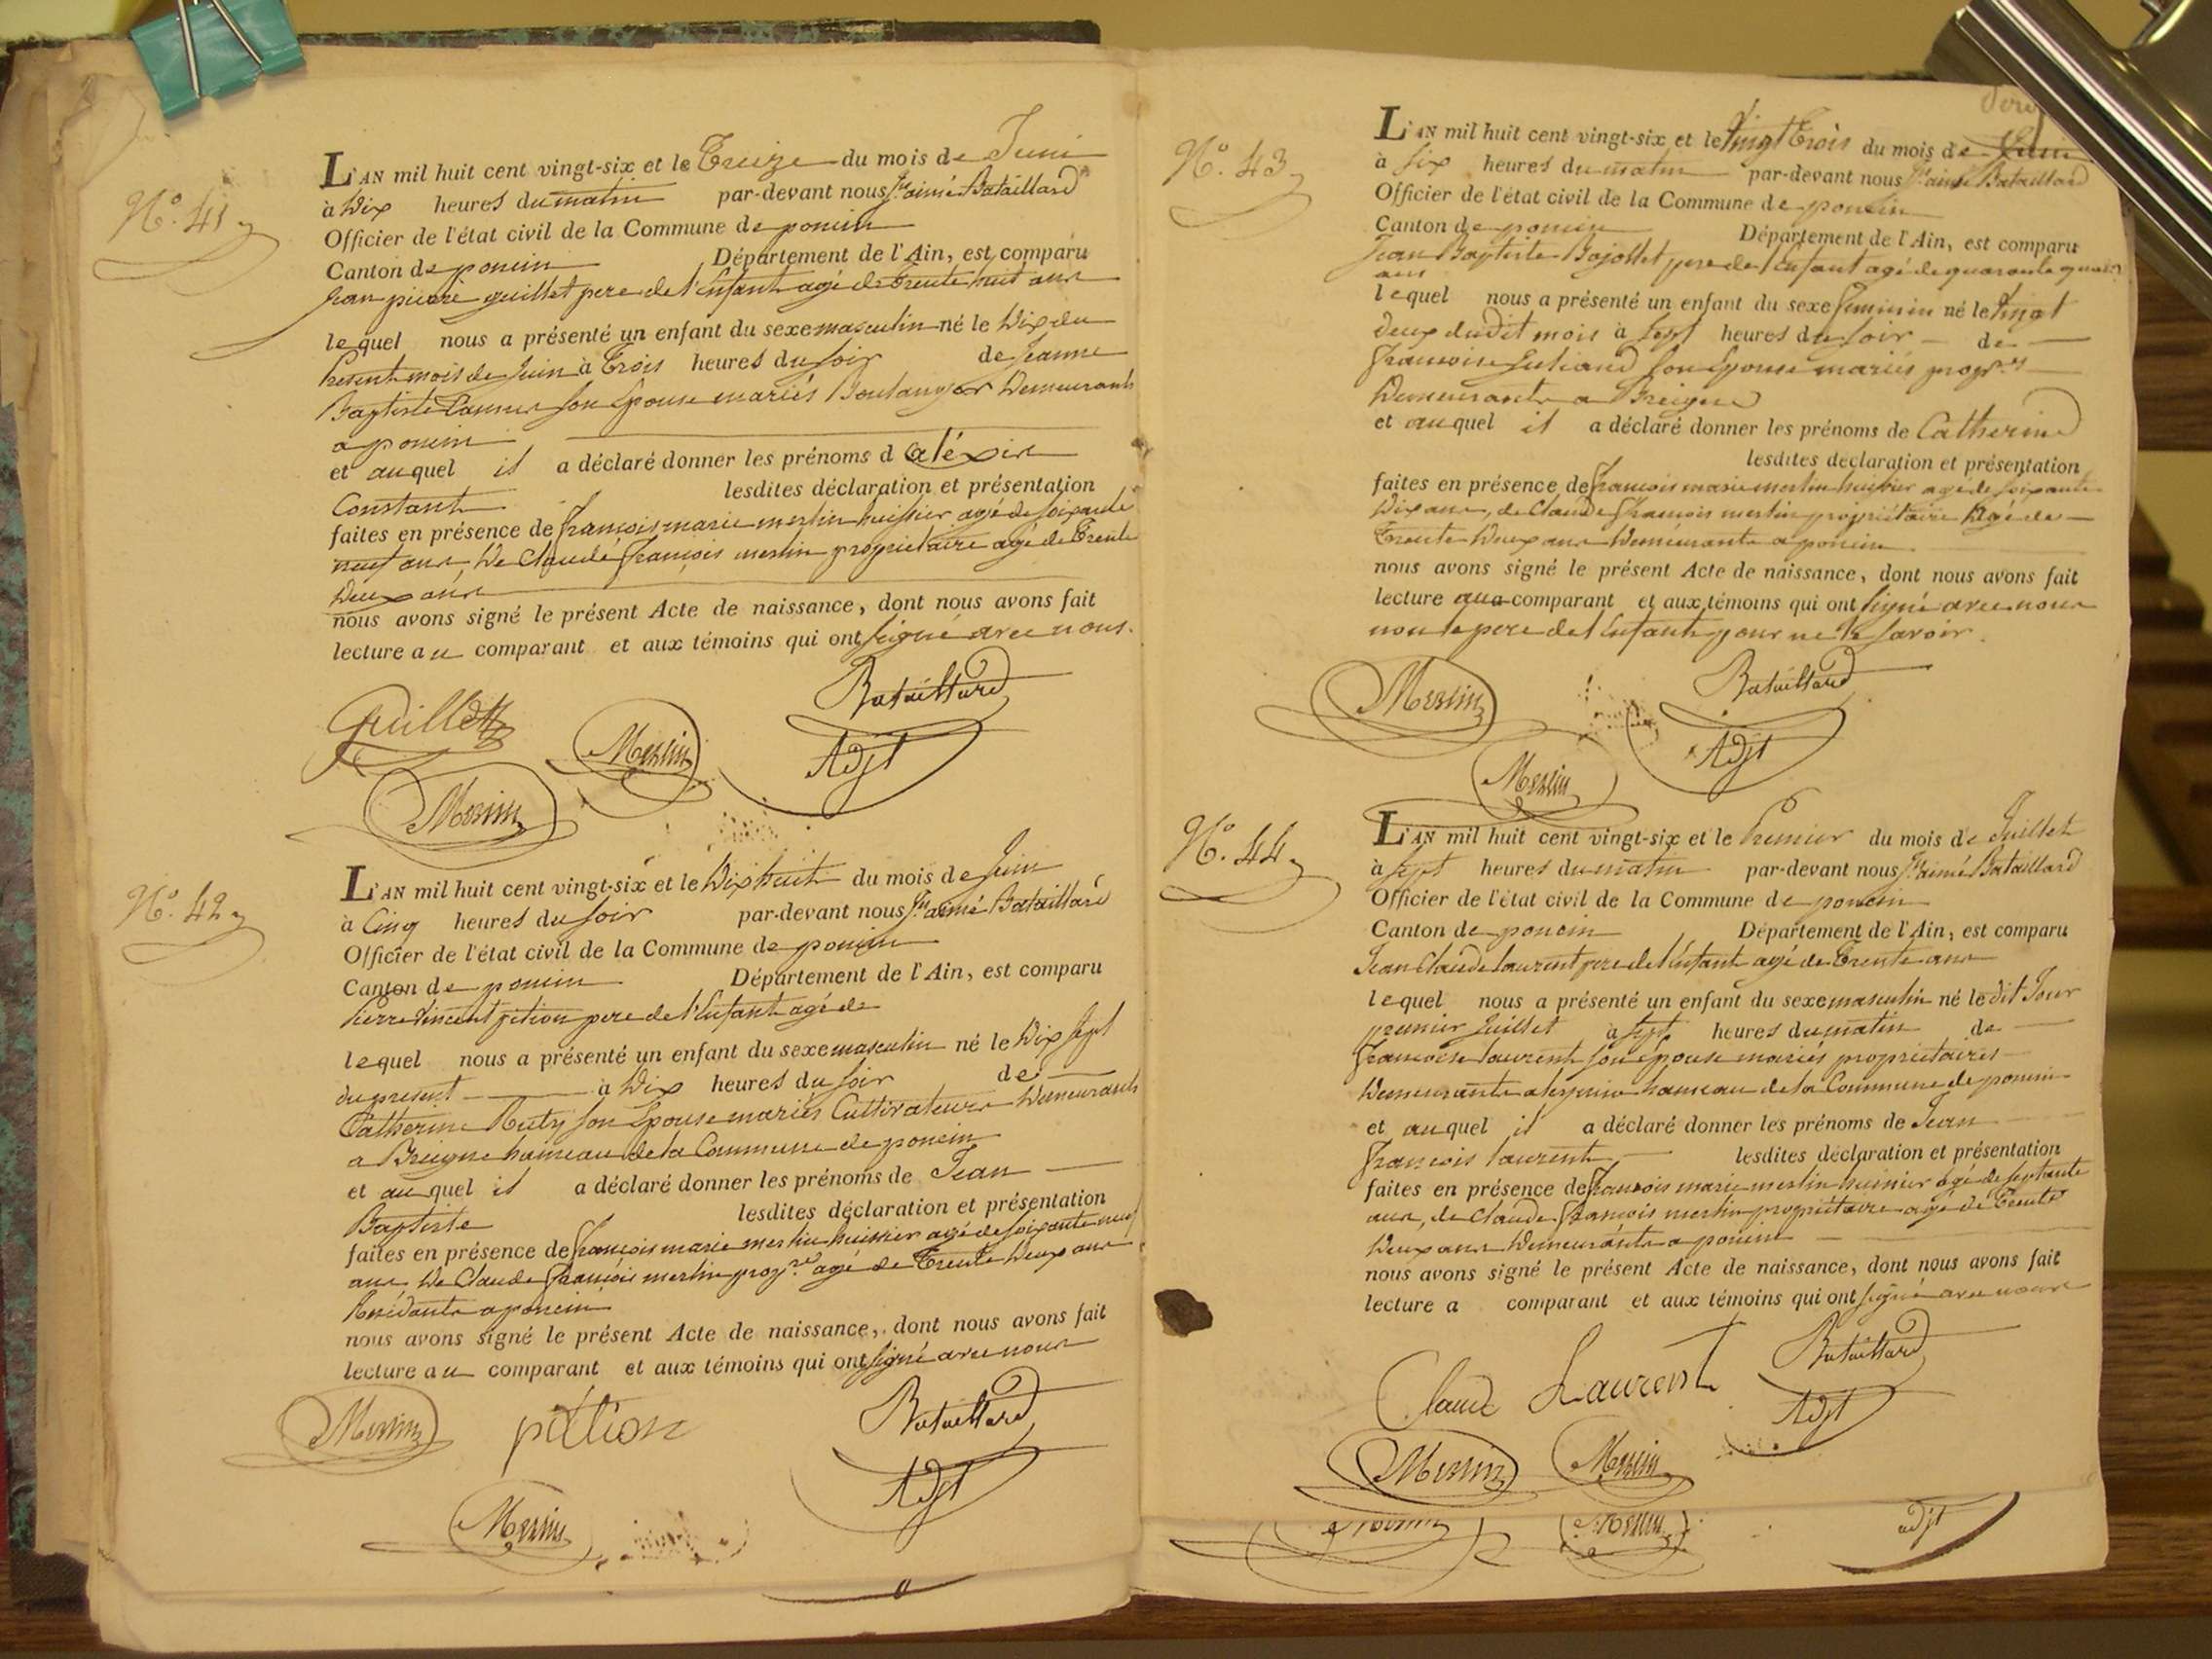 N.º 41
L'AN mil huit cent vingt-six et le Treize du mois de Juin
à Dix heures du matin par-devant nous Jh aimé Bataillard
Officier de l'état civil de la Commune de poncin
Canton de poncin Département de l'Ain, est comparu
Jean pierre guillet pere de l'Enfant agé de Trente huit ans
lequel nous a présenté un enfant du sexe masculin né le Dix du
Present mois de Juin à Trois heures du soir de Jeanne
Baptiste son Epouse mariés Boulanger Demeurants
a poncin
et auquel il a déclaré donner les prénoms d aléxis
Constant lesdites déclaration et présentation
faites en présence de françois marie merlin huissier agé de soixante
neuf ans, De Claude françois merlin proprietaire agé de Trente
Deux ans
nous avons signé le présent Acte de naissance, dont nous avons fait
lecture au comparant et aux témoins qui ont signé avec nous.
Guillet
Merlin
Bataillard
Adjt
Merlin
N.º 42
L'AN mil huit cent vingt-six et le Dix huit du mois de Juin
à Cinq heures du soir par-devant nous Jh aimé Bataillard
Officier de l'état civil de la Commune de poncin
Canton de poncin Département de l'Ain, est comparu
Pierre Vincent pition pere de l'Enfant agé de
lequel nous a présenté un enfant du sexe masculin né le Dix sept
du present à Dix heures du soir de
Catherine son Epouse mariés Cultivateurs Demeurants
a Breigne hameau de la Commune de poncin
et auquel il a déclaré donner les prénoms de Jean
Baptiste lesdites déclaration et présentation
faites en présence de françois marie merlin huissier agé de soixante neuf
ans De Claude françois merlin propre agé de Trente Deux ans
Residants a poncin
nous avons signé le présent Acte de naissance, dont nous avons fait
lecture au comparant et aux témoins qui ont signé avec nous
Merlin
pition
Bataillard
Adjt
Merlin
N.º 43
L'AN mil huit cent vingt-six et le Vingt Trois du mois de Juin
à six heures du matin par-devant nous Jh aimé Bataillard
Officier de l'état civil de la Commune de poncin
Canton de poncin Département de l'Ain, est comparu
Jean Baptiste Bajollet pere de l'Enfant agé de quarante quatre
ans
lequel nous a présenté un enfant du sexe feminin né le Vingt
deux dudit mois à sept heures du soir de
francoise son Epouse mariés propres
Demeurants a Breigne
et auquel il a déclaré donner les prénoms de Catherine
lesdites déclaration et présentation
faites en présence de francois marie merlin huissier agé de soixante
Dix ans, de Claude francois merlin propriétaire agé de
Trente Deux ans Demeurants a poncin
nous avons signé le présent Acte de naissance, dont nous avons fait
lecture au comparant et aux témoins qui ont signé avec nous
non le pere de l'Enfant pour ne le savoir.
Merlin
Bataillard
Adjt
Merlin
N.º 44
L'AN mil huit cent vingt-six et le Premier du mois de Juillet
à sept heures du matin par-devant nous Jh aimé Bataillard
Officier de l'état civil de la Commune de poncin
Canton de poncin Département de l'Ain, est comparu
Jean Claude laurent pere de l'Enfant agé de Trente ans
lequel nous a présenté un enfant du sexe masculin né le dit Jour
premier Juillet à sept heures du matin de
francoise laurent son epouse mariés propriétaires
Demeurants hameau de la Commune de poncin
et auquel il a déclaré donner les prénoms de Jean
François laurent lesdites déclaration et présentation
faites en présence de francois marie merlin huissier agé de septante
ans, de Claude francois merlin propriétaire agé de Trente
Deux ans Demeurants a poncin
nous avons signé le présent Acte de naissance, dont nous avons fait
lecture a comparant et aux témoins qui ont signé avec nous
Claude Laurent
Bataillard
Adjt
Merlin
Merlin
Merlin
Merlin
adjt